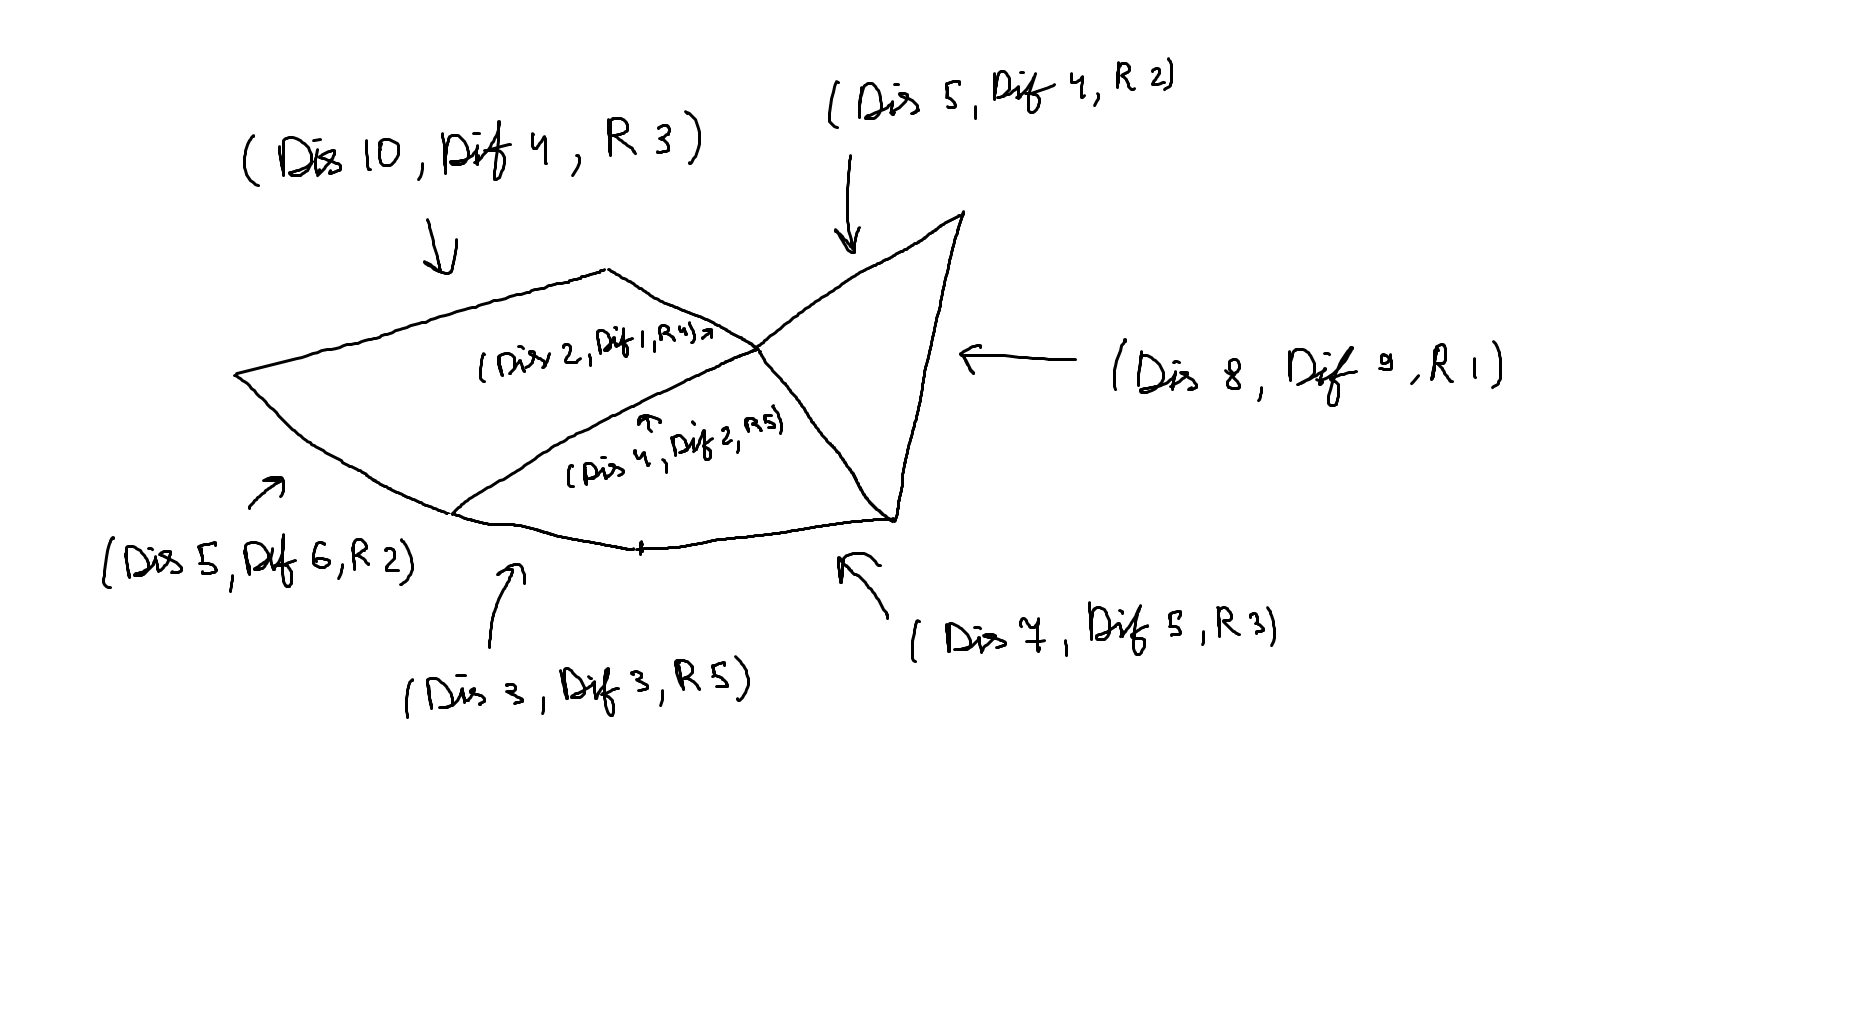 (Dis 5, Dif 4, R 2)
(Dis 10, Dif 4, R 3)
(Dis 2, Dif 1, R4)
(Dis 8, Dif 9, R 1)
(Dis 4, Dif 2, R5)
(Dis 5, Dif 6, R 2)
(Dis 7, Dif 5, R 3)
(Dis 3, Dif 3, R 5)